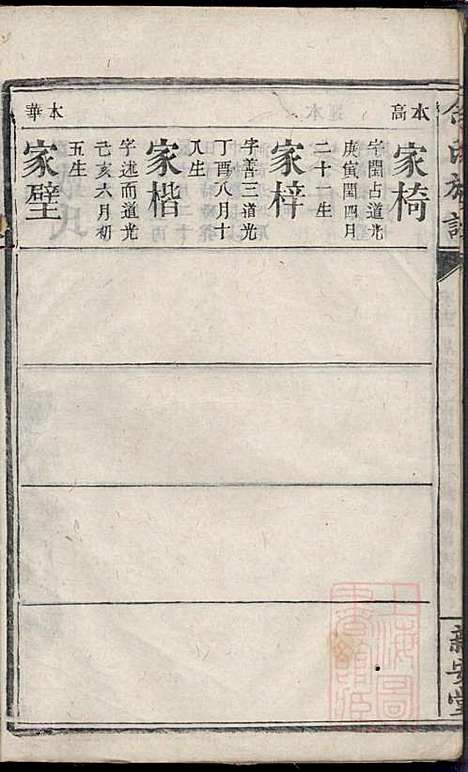 余氏族譜
新安堂
本高
家椅
字閩占道光
庚寅閏四月
二十一生
家梓
字善三道光
丁酉八月十
八生
家楷
字述而道光
己亥六月初
五生
本華
家璧
上海圖書館藏